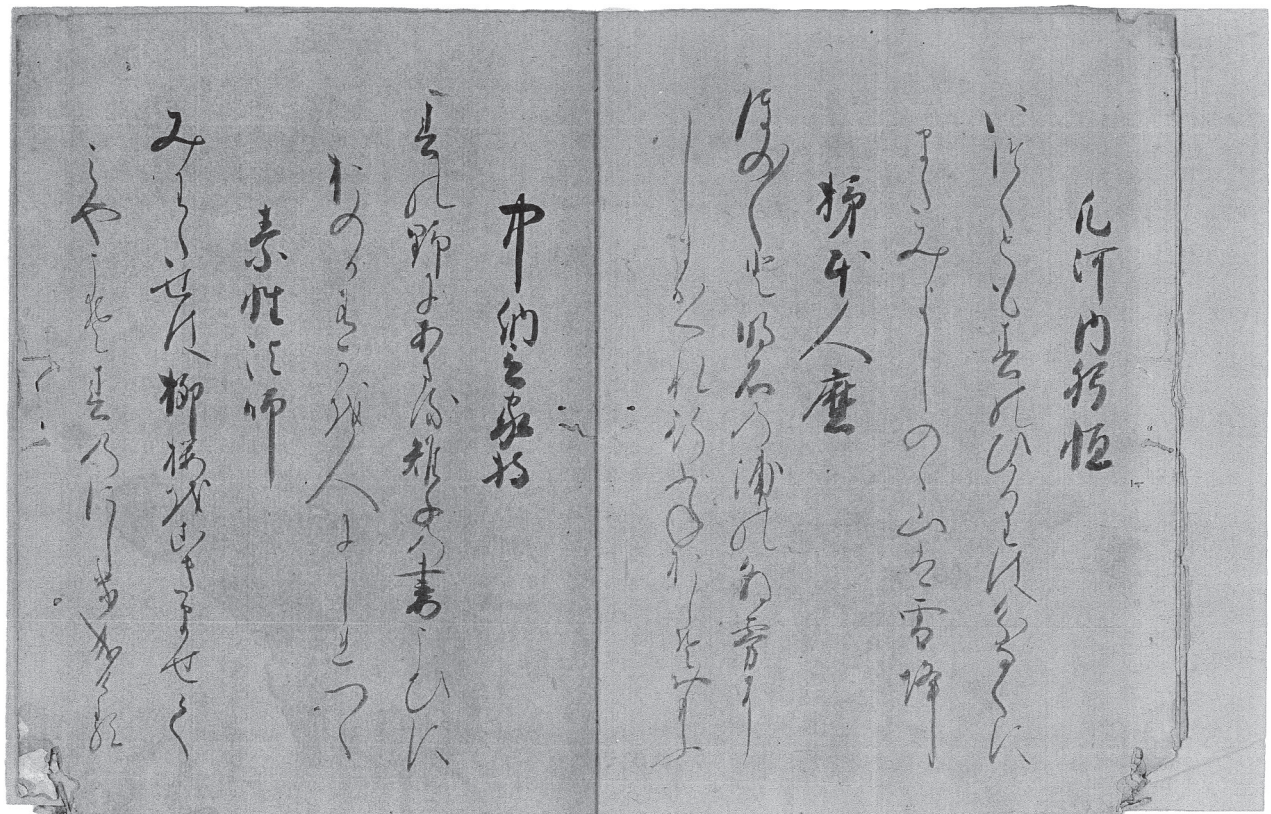 凡河内躬恒
いづくとも春のひかりはわかなくに
まだみよしのゝ山は雪降
柿本人麿
ほの〴〵と明石の浦の朝霧に
しまがくれ行舟をしぞおもふ
中納言家持
春の野にあさる雉子の妻こひに
おのがありかを人にしれつゝ
素性法師
みわたせば柳桜をこきまぜて
みやこぞ春のにしき成ける